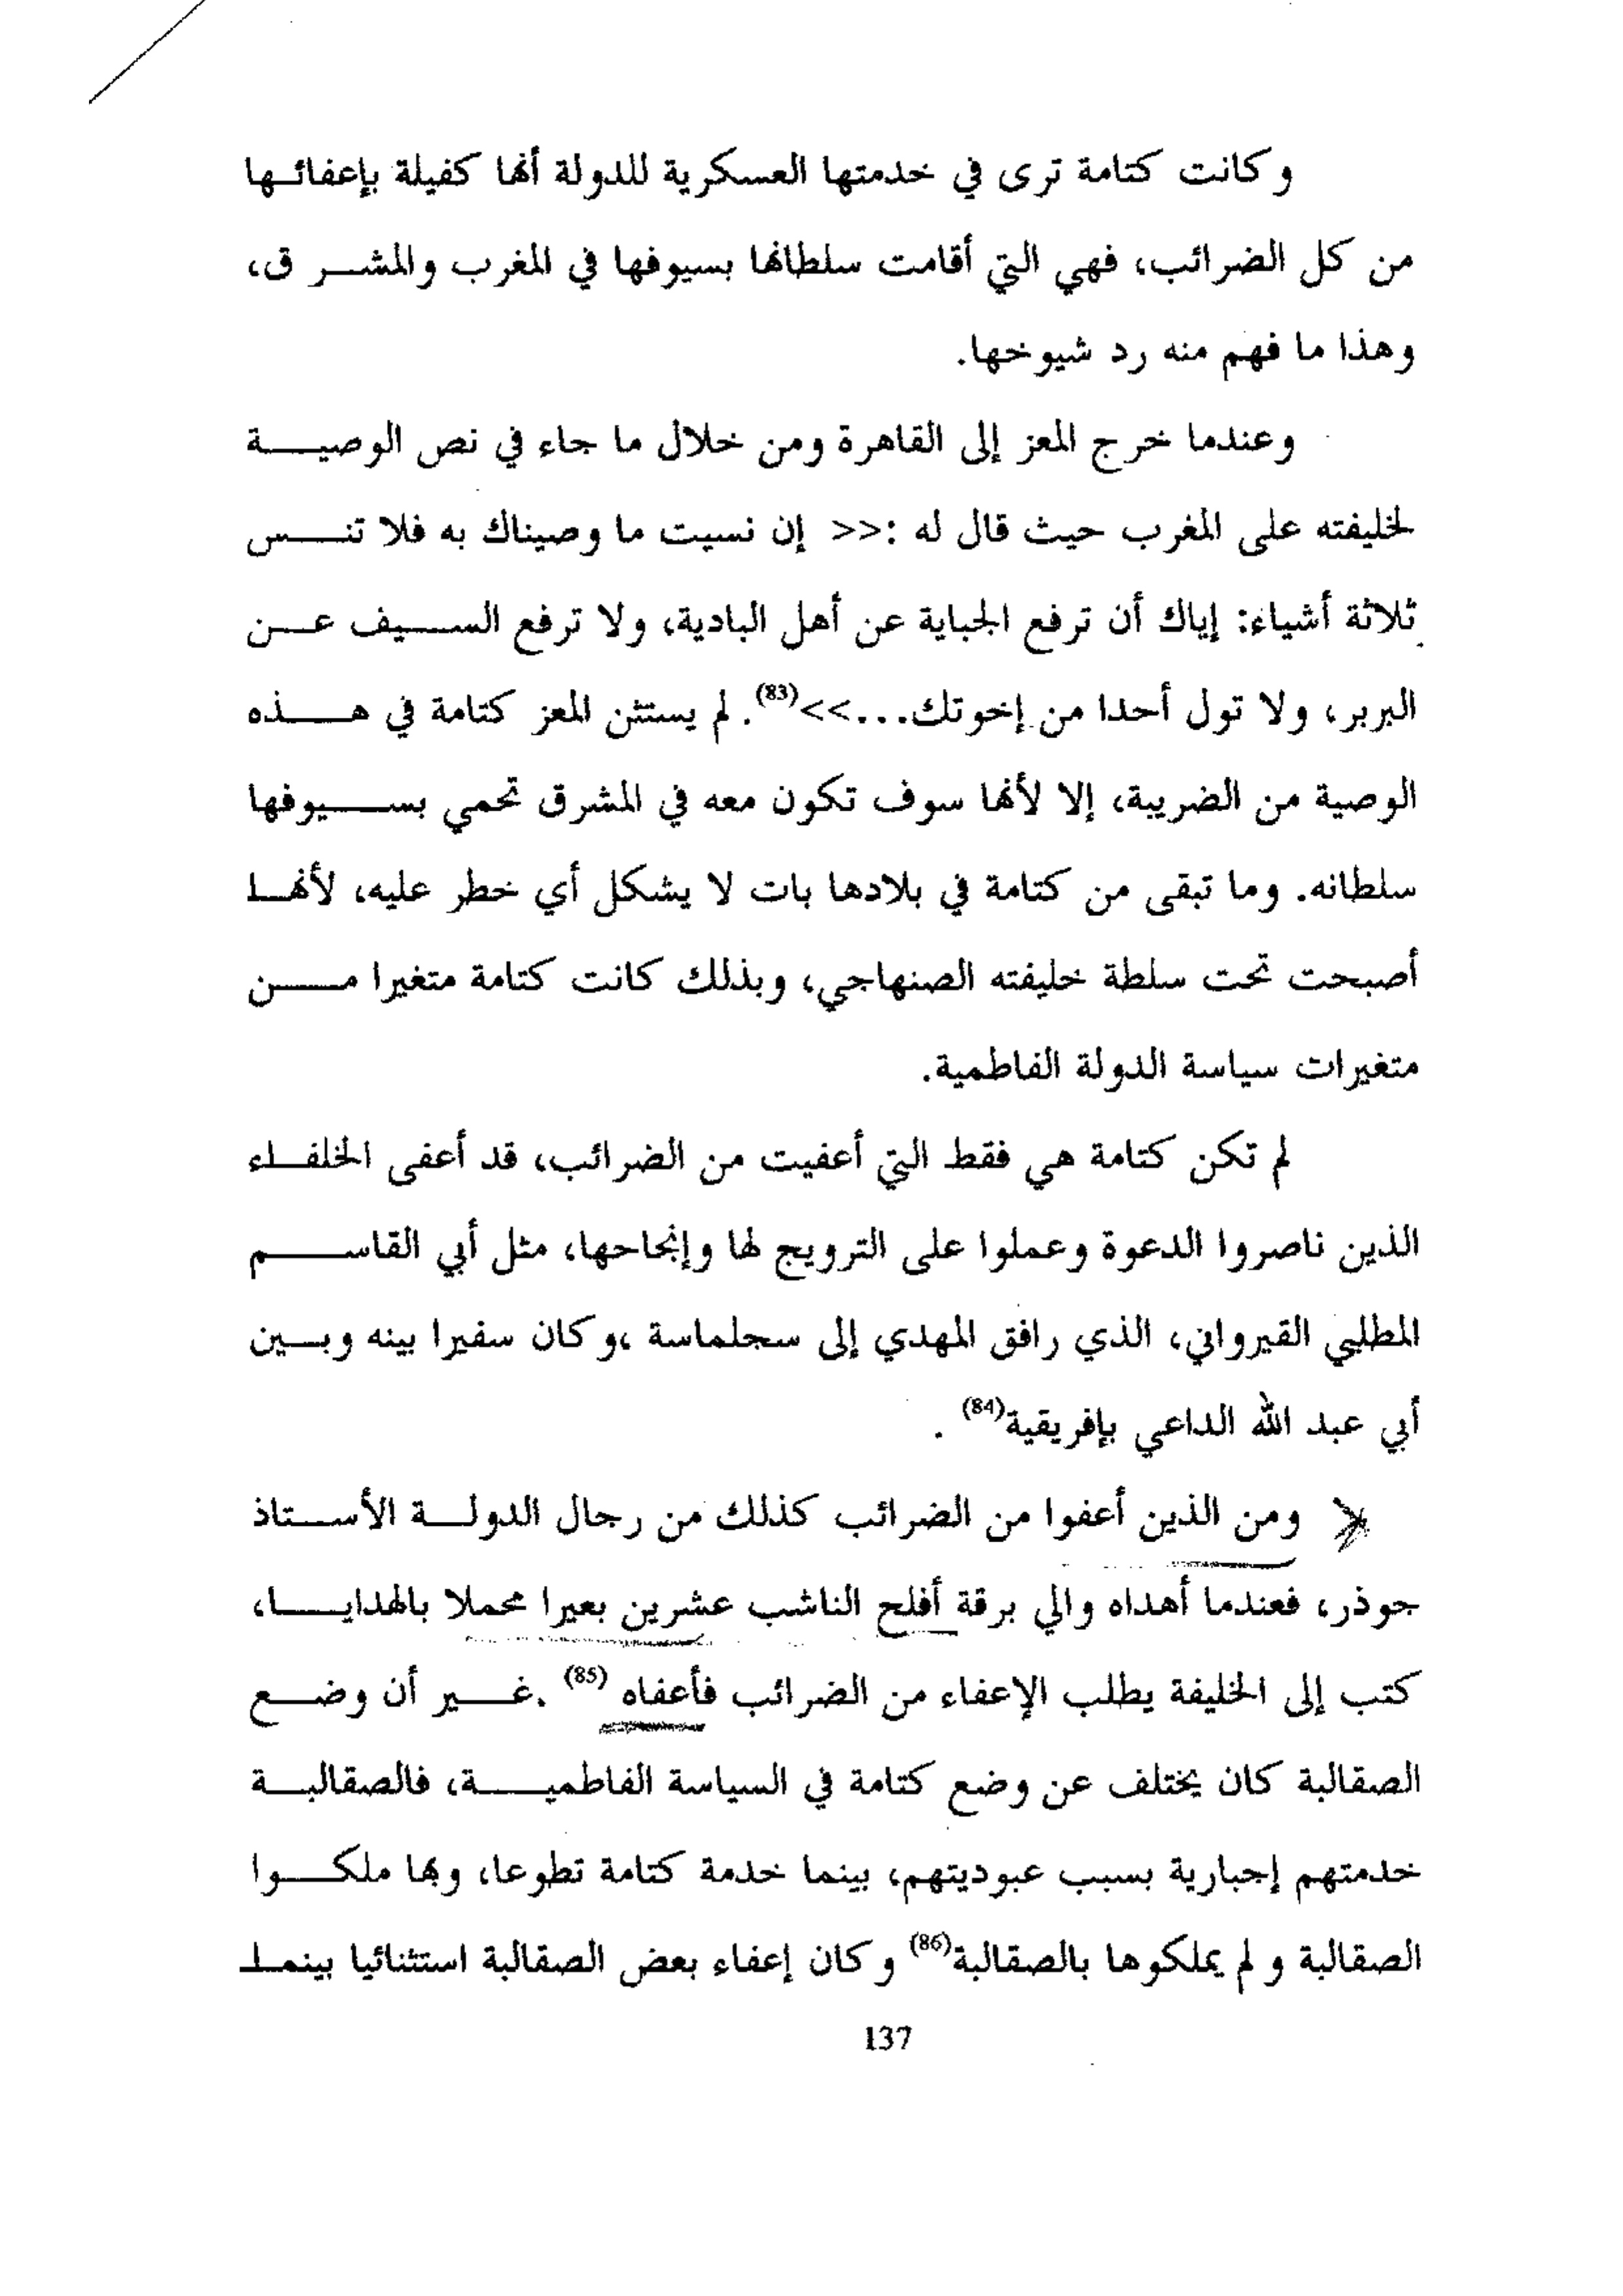 وكانت كتامة ترى في خدمتها العسكرية للدولة أنها كفيلة بإعفائها
من كل الضرائب، فهي التي أقامت سلطانها بسيوفها في المغرب والمشر ق،
وهذا ما فهم منه رد شيوخها.
وعندما خرج المعز إلى القاهرة ومن خلال ما جاء في نص الوصية
لخليفته على المغرب حيث قال له :<< إن نسيت ما وصيناك به فلا تنس
ثلاثة أشياء: إياك أن ترفع الجباية عن أهل البادية، ولا ترفع السيف عن
البربر، ولا تول أحدا من إخوتك...>>(83). لم يستثن المعز كتامة في هذه
الوصية من الضريبة، إلا لأنها سوف تكون معه في المشرق تحمي بسيوفها
سلطانه. وما تبقى من كتامة في بلادها بات لا يشكل أي خطر عليه، لأنها
أصبحت تحت سلطة خليفته الصنهاجي، وبذلك كانت كتامة متغيرا من
متغيرات سياسة الدولة الفاطمية.
لم تكن كتامة هي فقط التي أعفيت من الضرائب، قد أعفى الخلفاء
الذين ناصروا الدعوة وعملوا على الترويج لها وإنجاحها، مثل أبي القاسم
المطلبي القيرواني، الذي رافق المهدي إلى سجلماسة ،وكان سفيرا بينه وبين
أبي عبد الله الداعي بإفريقية(84) .
ومن الذين أعفوا من الضرائب كذلك من رجال الدولة الأستاذ
جوذر، فعندما أهداه والي برقة أفلح الناشب عشرين بعيرا محملا بالهدايا،
كتب إلى الخليفة يطلب الإعفاء من الضرائب فأعفاه (85) .غير أن وضع
الصقالبة كان يختلف عن وضع كتامة في السياسة الفاطمية، فالصقالبة
خدمتهم إجبارية بسبب عبوديتهم، بينما خدمة كتامة تطوعا، وبها ملكوا
الصقالبة و لم يملكوها بالصقالبة(86) وكان إعفاء بعض الصقالبة استثنائيا بينما
137